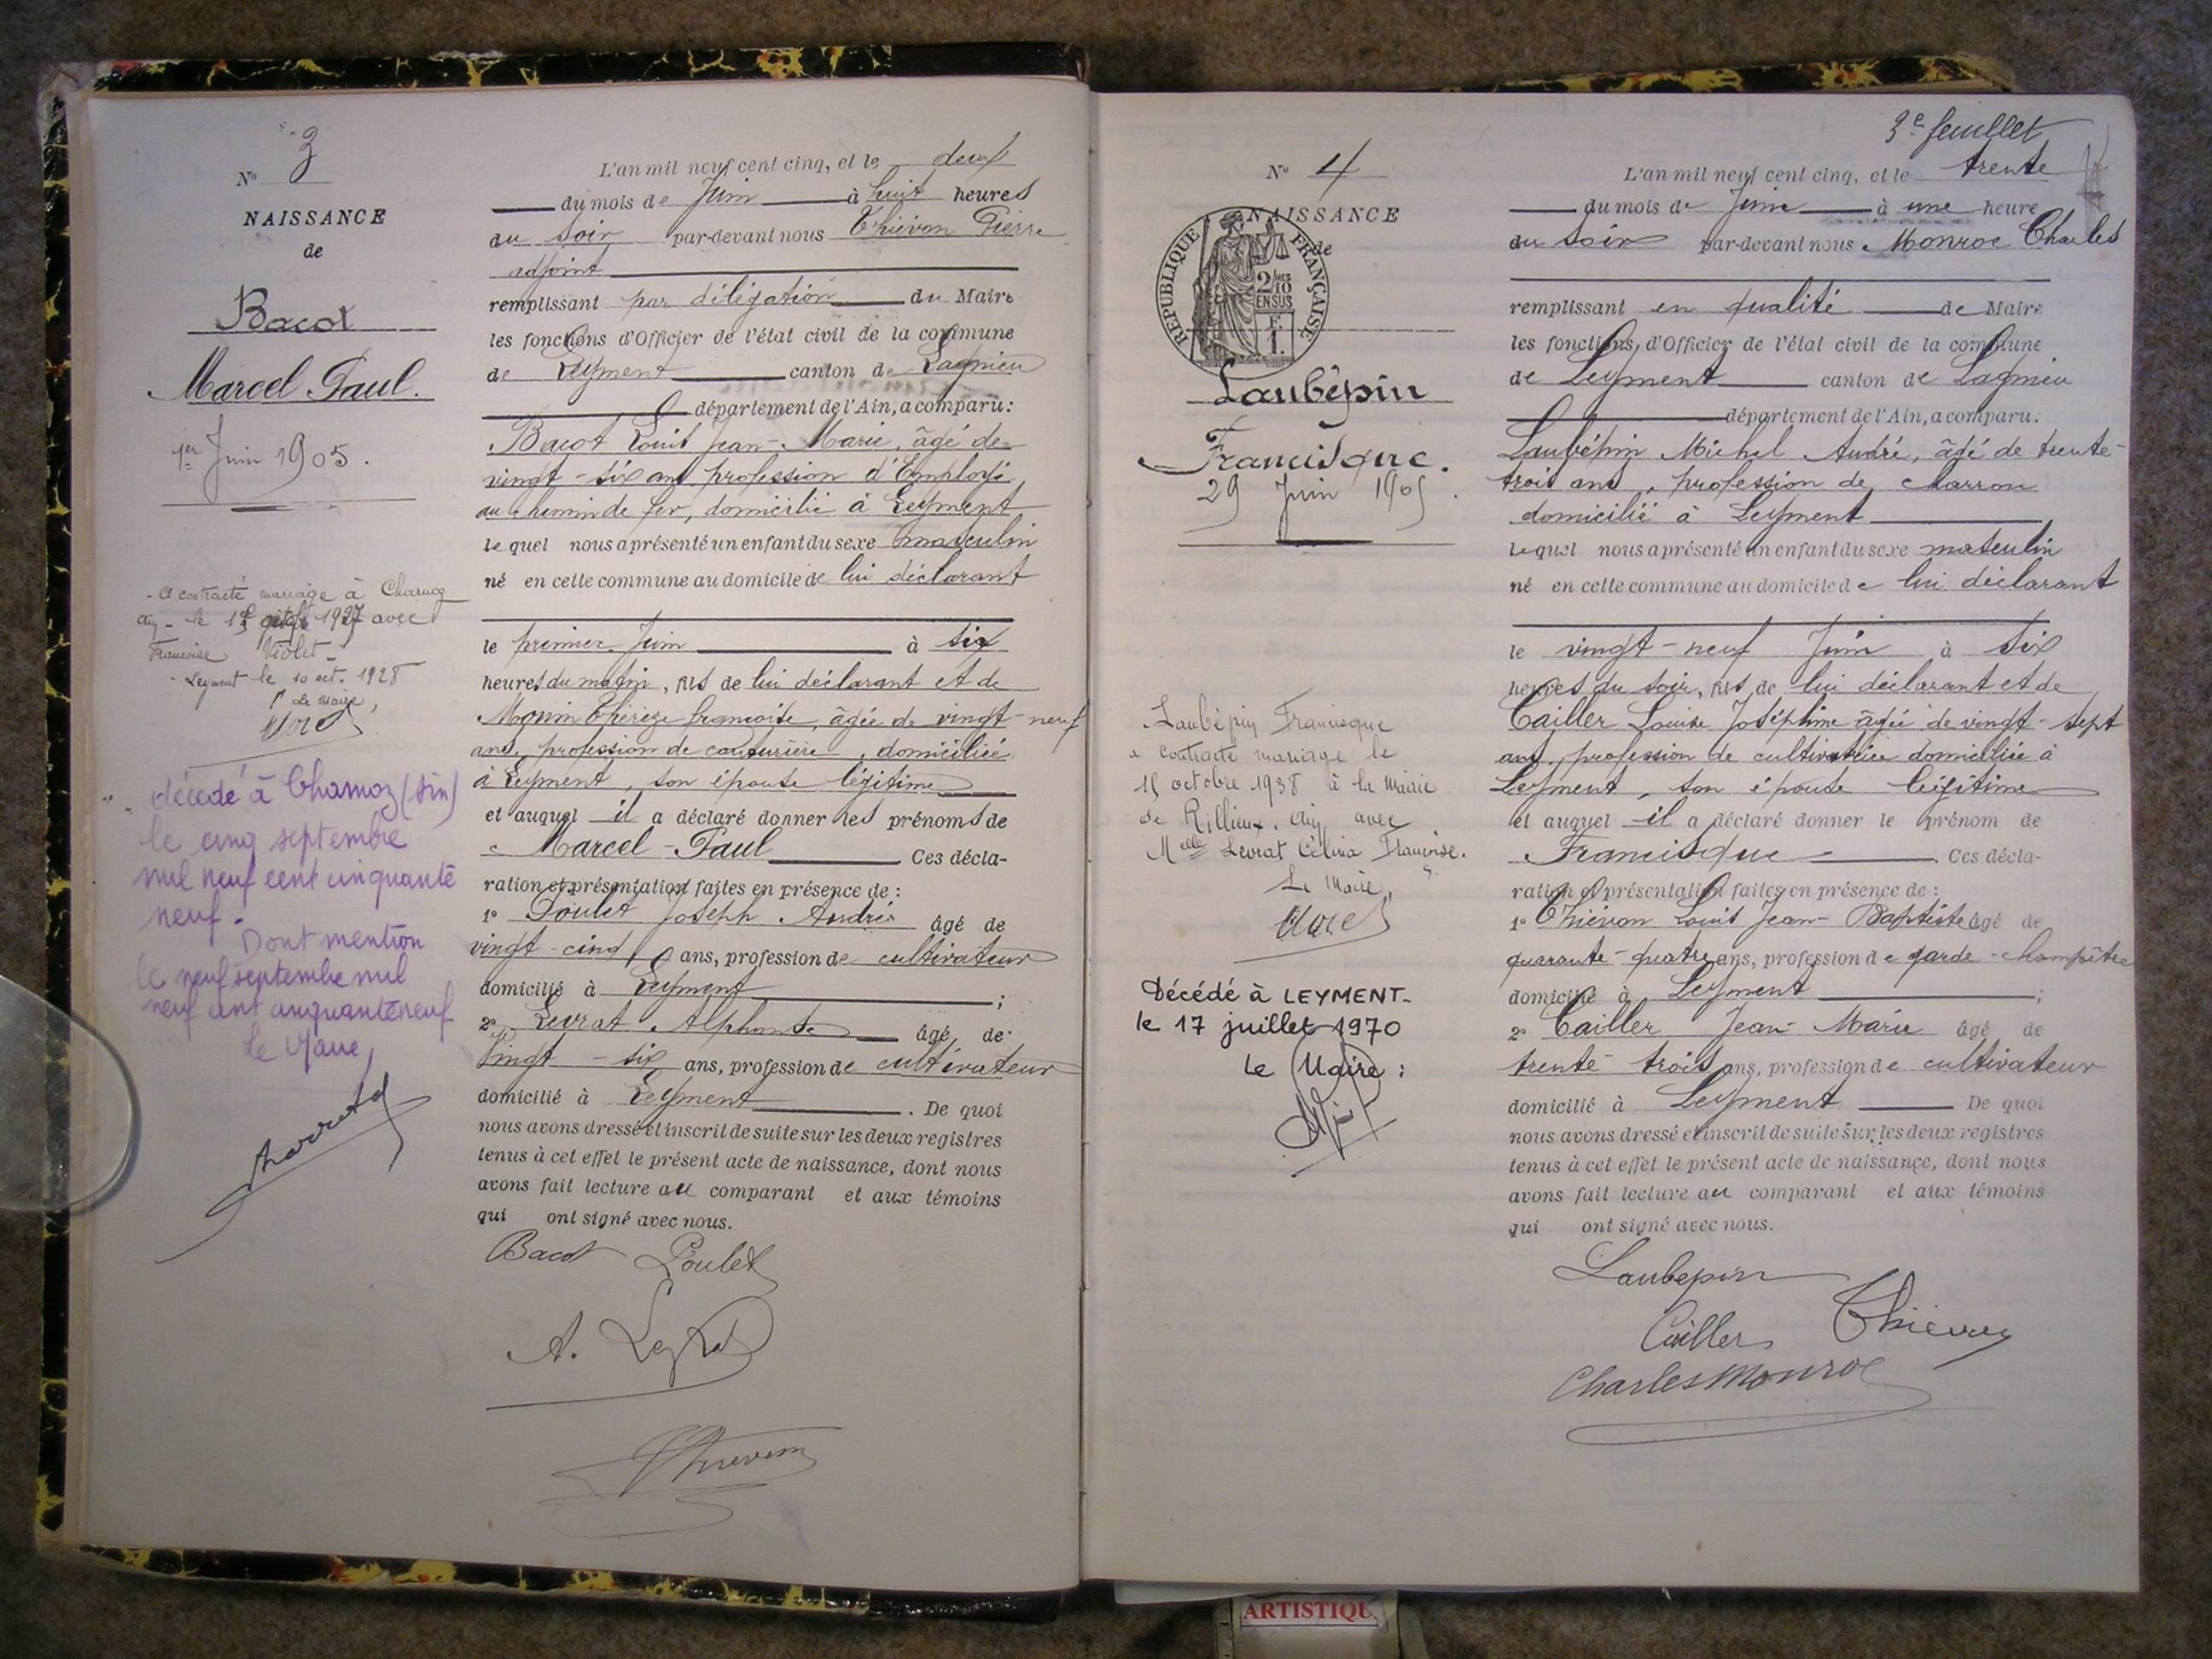 N° 3
NAISSANCE
de
Bacot
Marcel Paul.
1er Juin 1905.
- A contracté mariage à Charnoz
Ain - le 1927 avec
Françoise Violet -
- Leyment le 10 oct. 1928
Le Maire,
décédé à Charnoz (Ain)
le cinq septembre
mil neuf cent cinquante
neuf.
Dont mention
le neuf septembre mil
neuf cent cinquante neuf
Le Maire,
L'an mil neuf cent cinq, et le deux
du mois de Juin à huit heures
du soir par-devant nous Thiévon Pierre
adjoint
remplissant par délégation du Maire
les fonctions d'Officier de l'état civil de la commune
de Leyment canton de Lagnieu
département de l'Ain, a comparu:
Bacot Louis Jean-Marie, âgé de
vingt-six ans, profession d'Employé
au chemin de fer, domicilié à Leyment
lequel nous a présenté un enfant du sexe masculin
né en cette commune au domicile de lui déclarant
le premier Juin à six
heures du matin, fils de lui déclarant et de
Moguin Thérèze françoise, âgée de vingt-neuf
ans, profession de couturière, domiciliée
à Leyment, son épouse légitime
et auquel il a déclaré donner les prénoms de
Marcel-Paul Ces décla-
ration et présentation faites en présence de :
1° Poulet Joseph André âgé de
vingt-cinq ans, profession de cultivateur
domicilié à Leyment ;
2° Levrat Alphonse âgé de
Vingt-six ans, profession de cultivateur
domicilié à Leyment. De quoi
nous avons dressé et inscrit de suite sur les deux registres
tenus à cet effet le présent acte de naissance, dont nous
avons fait lecture au comparant et aux témoins
qui ont signé avec nous.
Bacot Poulet
A. Levrat
Thievon
3e feuillet
N° 4
NAISSANCE
de
REPUBLIQUE FRANÇAISE
2/10 EN SUS
F
1.
Laubépin
Francisque.
29 Juin 1905.
Laubépin Francisque
a contracté mariage le
15 octobre 1938 à la Mairie
de Rillieux. Ain, avec
Melle Levrat Célina Françoise.
Le Maire,
Décédé à LEYMENT-
le 17 juillet 1970
Le Maire :
L'an mil neuf cent cinq, et le trente
du mois de Juin à une heure
du soir par-devant nous Monroe Charles
remplissant en qualité de Maire
les fonctions d'Officier de l'état civil de la commune
de Leyment canton de Lagnieu
département de l'Ain, a comparu.
Laubépin Michel André, âgé de trente-
trois ans, profession de charron
domicilié à Leyment
lequel nous a présenté un enfant du sexe masculin
né en cette commune au domicile de lui déclarant
le vingt-neuf Juin à six
heures du soir, fils de lui déclarant et de
Cailler Louise Joséphine âgée de vingt-sept
ans, profession de cultivatrice domiciliée à
Leyment, son épouse légitime
et auquel il a déclaré donner le prénom de
Francisque. Ces décla-
ration et présentation faites en présence de :
1° Thiévon Louis Jean-Baptiste âgé de
quarante-quatre ans, profession de garde-champêtre
domicilié à Leyment ;
2° Cailler Jean-Marie âgé de
trente-trois ans, profession de cultivateur
domicilié à Leyment De quoi
nous avons dressé et inscrit de suite sur les deux registres
tenus à cet effet le présent acte de naissance, dont nous
avons fait lecture au comparant et aux témoins
qui ont signé avec nous.
Laubepin
Cailler Thievon
Charles Monroe
ARTISTIQU